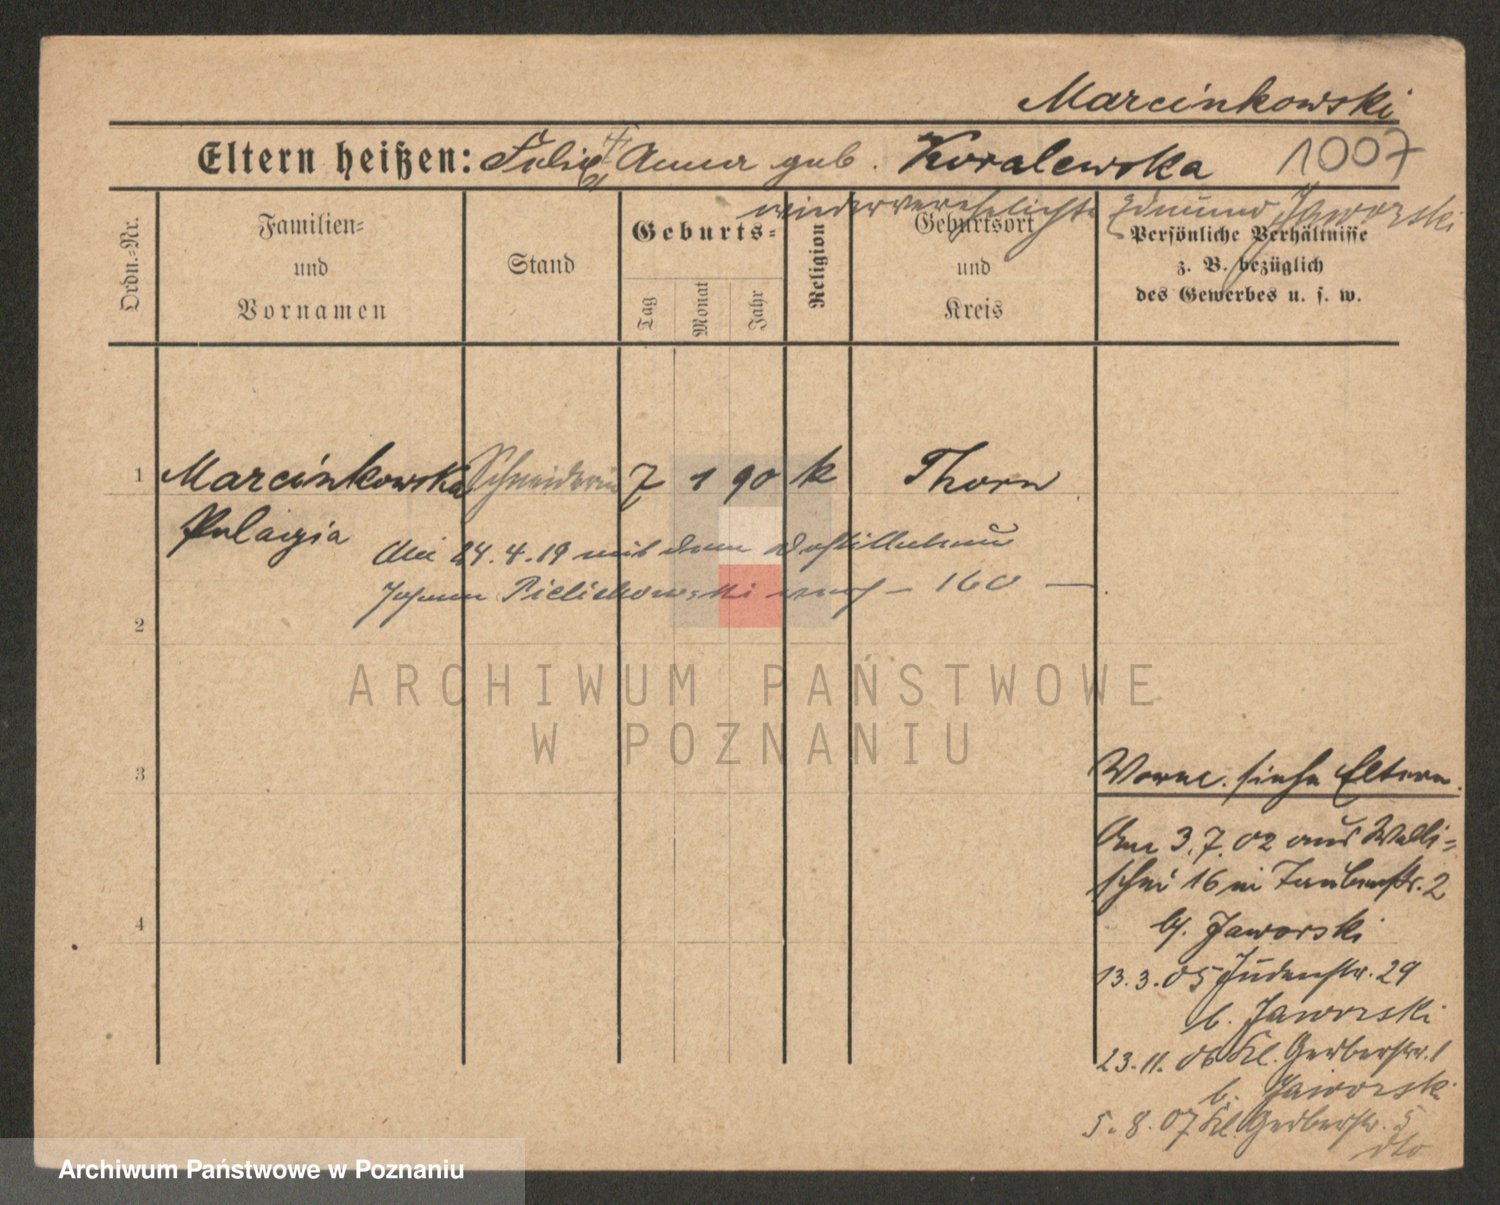 Marcinkowski
Eltern heißen: Felix † Anna geb. Koralewska
1007
wiederverehelichte Edmund Jaworski
Ordn.-Nr.
Familien-
und
Vornamen
Stand
Geburts-
Tag
Monat
Jahr
Religion
Geburtsort
und
Kreis
Persönliche Verhältnisse
z. B. bezüglich
des Gewerbes u. s. w.
1
Marcinkowska Schneiderin 7 1 90 k Thorn
Pelagia
24.4.19 mit dem
Johann 160 —
2
ARCHIWUM PAŃSTWOWE
W POZNANIU
3
Vorne. siehe Eltern.
Am 3.7.02 aus Walli-
schei 16 in Taubenstr. 2
b/. Jaworski
4
13.3.05 Judenstr. 29
b. Jaworski
23.11.06 Kl. Gerberstr. 1
b. Jaworski
5.8.07 Kl. Gerberstr. 5
dto
Archiwum Państwowe w Poznaniu